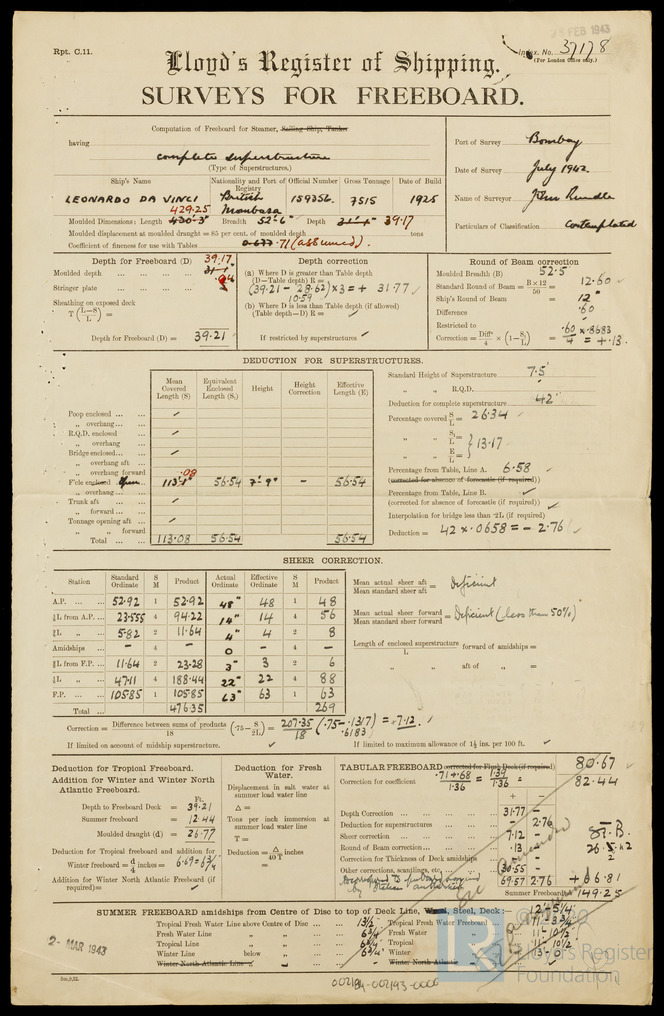 FEB 1943
Rpt. C.11.
Index. No. 37178
(For London Office only.)
Lloyd's Register of Shipping.
SURVEYS FOR FREEBOARD.
Computation of Freeboard for Steamer, Sailing Ship, Tanker
having
complete superstructure
(Type of Superstructures.)
Port of Survey Bombay
Date of Survey July 1942.
Name of Surveyor John Rundle
Particulars of Classification Contemplated
Ship's Name Nationality and Port of Registry Official Number Gross Tonnage Date of Build
LEONARDO DA VINCI British Mombasa 159356. 7515 1925
429.25 39.17
Moulded Dimensions: Length 430'-3" Breadth 52'-6" Depth
Moulded displacement at moulded draught = 85 per cent. of moulded depth tons
Coefficient of fineness for use with Tables .71 (assumed).
Depth for Freeboard (D) 39.17
Moulded depth
Stringer plate .04
Sheathing on exposed deck
T (L-S / L) =
Depth for Freeboard (D) = 39.21
Depth correction
(a) Where D is greater than Table depth
(D—Table depth) R =
(39.21 - 28.62) × 3 = + 31.77
10.59
(b) Where D is less than Table depth (if allowed)
(Table depth—D) R =
If restricted by superstructures
Round of Beam correction
Moulded Breadth (B) 52.5'
Standard Round of Beam = B × 12 / 50 = 12.60
Ship's Round of Beam = 12"
Difference .60
Restricted to
Correction = Diffce / 4 × (1 - S₁ / L) = .60 / 4 × .8683 = + .13.
DEDUCTION FOR SUPERSTRUCTURES.
Mean Covered Length (S) Equivalent Enclosed Length (S₁) Height Height Correction Effective Length (E)
Poop enclosed
„ overhang
R.Q.D. enclosed
„ overhang
Bridge enclosed
„ overhang aft
„ overhang forward
F'cle enclosed Open 113'-1" .08 56.54 7'-9" - 56.54
„ overhang
Trunk aft
„ forward
Tonnage opening aft
„ „ forward
Total 113.08 56.54 56.54
Standard Height of Superstructure 7.5'
„ „ R.Q.D.
Deduction for complete superstructure 42"
Percentage covered S / L = 26.34
„ „ S₁ / L =
„ „ E / L = } 13.17
Percentage from Table, Line A. 6.58
(corrected for absence of forecastle (if required))
Percentage from Table, Line B.
(corrected for absence of forecastle (if required))
Interpolation for bridge less than ·2L (if required)
Deduction = 42 × .0658 = - 2.76
SHEER CORRECTION.
Station Standard Ordinate S M Product Actual Ordinate Effective Ordinate S M Product
A.P. 52.92 1 52.92 48" 48 1 48
⅙L from A.P. 23.555 4 94.22 14" 14 4 56
⅓L „ 5.82 2 11.64 4" 4 2 8
Amidships - 4 - 0 - 4 -
⅓L from F.P. 11.64 2 23.28 3" 3 2 6
⅙L „ 47.11 4 188.44 22" 22 4 88
F.P. 105.85 1 105.85 63" 63 1 63
Total 476.35 269
Mean actual sheer aft / Mean standard sheer aft = Deficient
Mean actual sheer forward / Mean standard sheer forward = Deficient (less than 50%)
Length of enclosed superstructure / L forward of amidships =
„ „ aft of „ =
Correction = Difference between sums of products / 18 (·75 - S / 2L) = 207.35 / 18 (.75 - .1317) = +7.12.
.6183
If limited on account of midship superstructure.
If limited to maximum allowance of 1½ ins. per 100 ft.
Deduction for Tropical Freeboard.
Addition for Winter and Winter North Atlantic Freeboard.
Ft.
Depth to Freeboard Deck = 39.21
Summer freeboard = 12.44
Moulded draught (d) = 26.77
Deduction for Tropical freeboard and addition for
Winter freeboard = d / 4 inches = 6.69 = 6¾
Addition for Winter North Atlantic Freeboard (if required) =
Deduction for Fresh Water.
Displacement in salt water at summer load water line
Δ =
Tons per inch immersion at summer load water line
T =
Deduction = Δ / 40 T
TABULAR FREEBOARD corrected for Flush Deck (if required) 80.67
Correction for coefficient .71+.68 / 1.36 = 1.39 / 1.36 = 82.44
+ −
Depth Correction 31.77 -
Deduction for superstructures - 2.76
Sheer correction 7.12 -
Round of Beam correction .13 -
Correction for Thickness of Deck amidships -
Other corrections, scantlings, etc. 30.55 -
69.57 2.76 + 66.81
Summer Freeboard = 149.25
SUMMER FREEBOARD amidships from Centre of Disc to top of Deck Line, Wood, Steel, Deck:— 12'-5¼"
Tropical Fresh Water Line above Centre of Disc 13½" Tropical Fresh Water Freeboard
Fresh Water Line „ „ 6¾" Fresh Water „
Tropical Line „ „ 6¾" Tropical „ 11'-10½"
Winter Line below „ 6¾" Winter „
Winter North Atlantic Line „ - Winter North Atlantic „ -
2 - MAR 1943
5m,9,32.
002194-002193-0006
LR
Lloyd's Register
Foundation